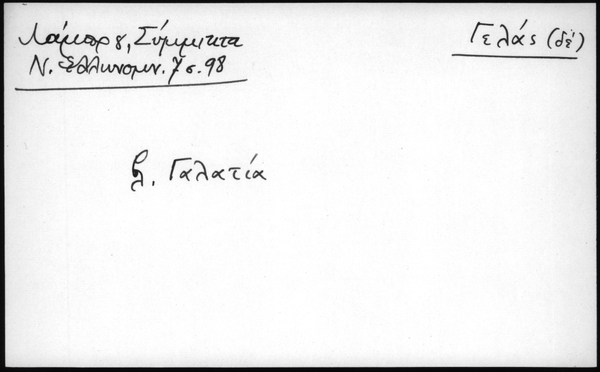 Λάμπρου, Σύμμικτα
Ν. Ελληνομν. 7 σ. 98
Γελάς (δέ)
βλ. Γαλατία